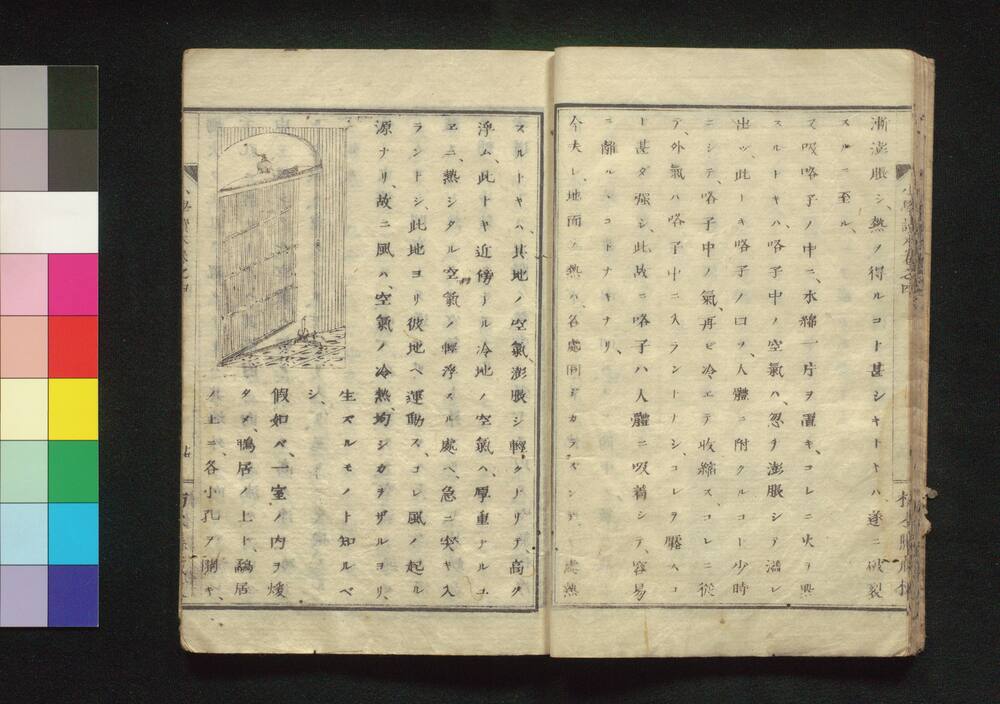 漸澎脹シ、熱ノ得ルコト甚シキトキハ遂ニ破裂
スルニ至ル、
又吸咯子ノ中ニ、水綿一片ヲ置キ、コレニ火ヲ點
スルトキハ、咯子中ノ空氣ハ、忽チ澎脹シテ溢レ
出ツ、此トキ咯子ノ口ヲ、人體ニ附クルコト少時
ニシテ、咯子中ノ氣、再ビ冷エテ收縮ス、コレニ從
テ、外氣ハ咯子中ニ入ラントノシ、コレヲ壓スコ
ト甚ダ強シ、此故ニ咯子ハ人體ニ吸着シテ、容易
ニ離ルヽコトナキナリ、
今夫レ、地面ノ熱ハ、各處同ジカラズ
熱
スルトキハ、其地ノ空氣澎脹シ輕クナリテ高ク
浮ム、此トキ近傍ナル冷地ノ空氣ハ、厚重ナルユ
ヱニ、熱シタル空氣ノ輕浮スル處ヘ、急ニ突キ入
ラントシ、此地ヨリ彼地ヘ運動ス、コレ風ノ起ル
源ナリ、故ニ風ハ、空氣ノ冷熱、均シカラザルヨリ、
生ズルモノト知ルベ
シ、
假如バ、一室ノ内ヲ煖
タメ、鴨居ノ上ト、鷸居
ノ上ニ、各小孔ヲ開キ、